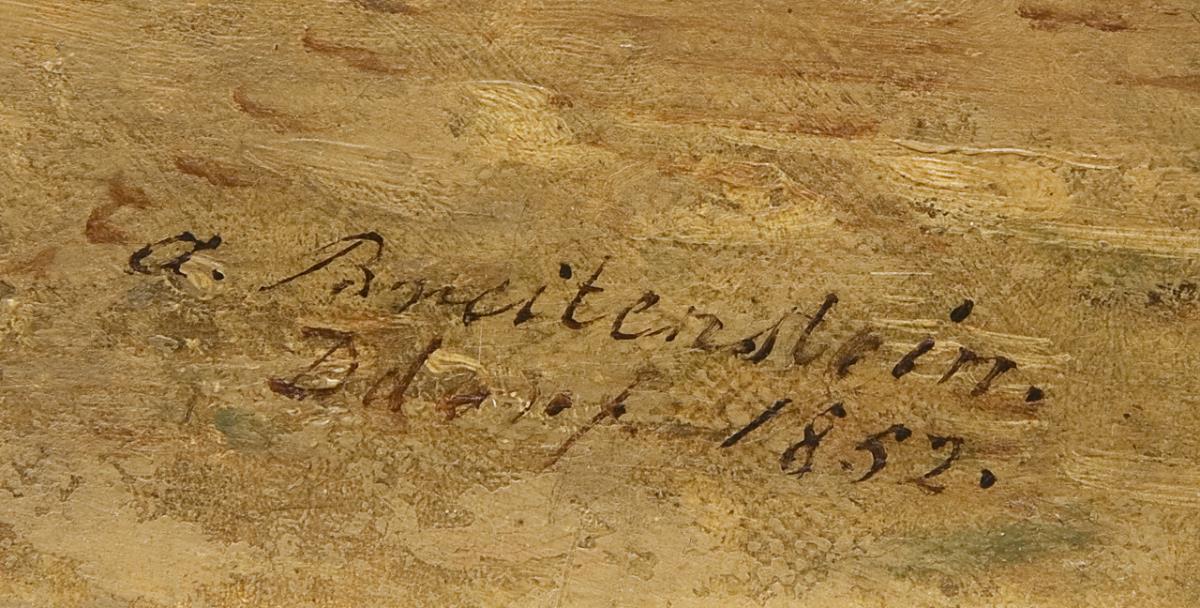 A. Breitenstein.
Dldorf 1852.